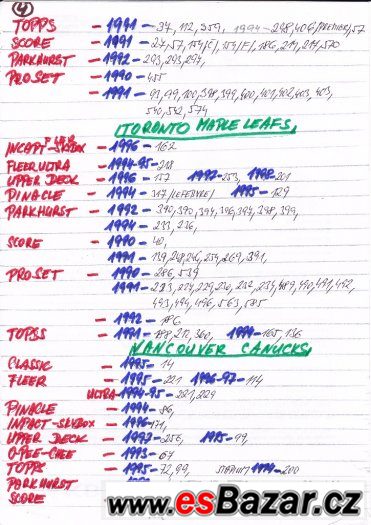 4
TOPPS - 1991 - 37, 112, 359, 1994 - 298, 406/PREMIER/, 57
SCORE - 1991 - 27, 57,
PARKHURST - 1992 - 293, 293, 294,
PROSET - 1990 - 455
- 1991 - 91, 99, 100, 398, 399, 400, 401, 402, 403, 403,
540, 542, 574
TORONTO MAPLE LEAFS,
- 1996 - 162
FLEER ULTRA - 1994-95 - 218
UPPER DECK - 1996 - 157 1997 - 253, 1998 - 201
PINACLE - 1994 - 317/LEFEBVRE/ 1995 - 129
PARKHURST - 1992 - 390, 390, 394, 396, 397, 398, 399,
- 1994 - 233, 236,
SCORE - 1990 - 40,
- 1991 - 139, 248, 246, 254, 269, 391,
PROSET - 1990 - 286, 539
1991 - 223, 224, 229, 230, 232, 234, 489, 490, 491, 492,
493, 494, 496, 563, 585
- 1992 - 186
TOPSS - 1991 - 188, 212, 360, 1994 - 165, 136
VANCOUVER CANUCKS,
CLASSIC - 1995 - 14
FLEER - 1995 - 221 1996-97 - 114
ULTRA - 1994-95 - 221, 229
PINACLE - 1994 - 86,
INPACT-SKYBOX - 1996 - 171,
UPPER DECK - 1997 - 256, 1995 - 99,
O-PEE-CHEE - 1993 - 67
TOPPS - 1995 - 72, 99, 1994 - 200
PARKHURST
SCORE
www.esBazar.cz